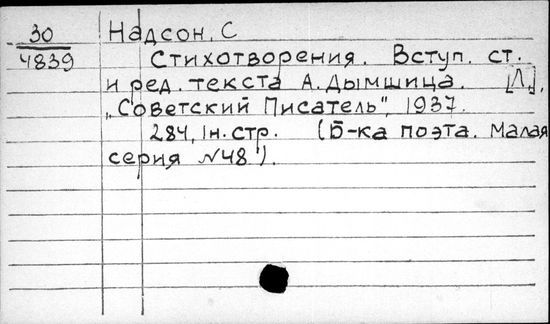 30 Надсон. С
4839 Стихотворения. Вступ. ст.
и ред. текста А. Дымшица. [Л.],
„Советский Писатель", 1937.
284, 1н. стр. (Б-ка поэта. Малая
серия №48).